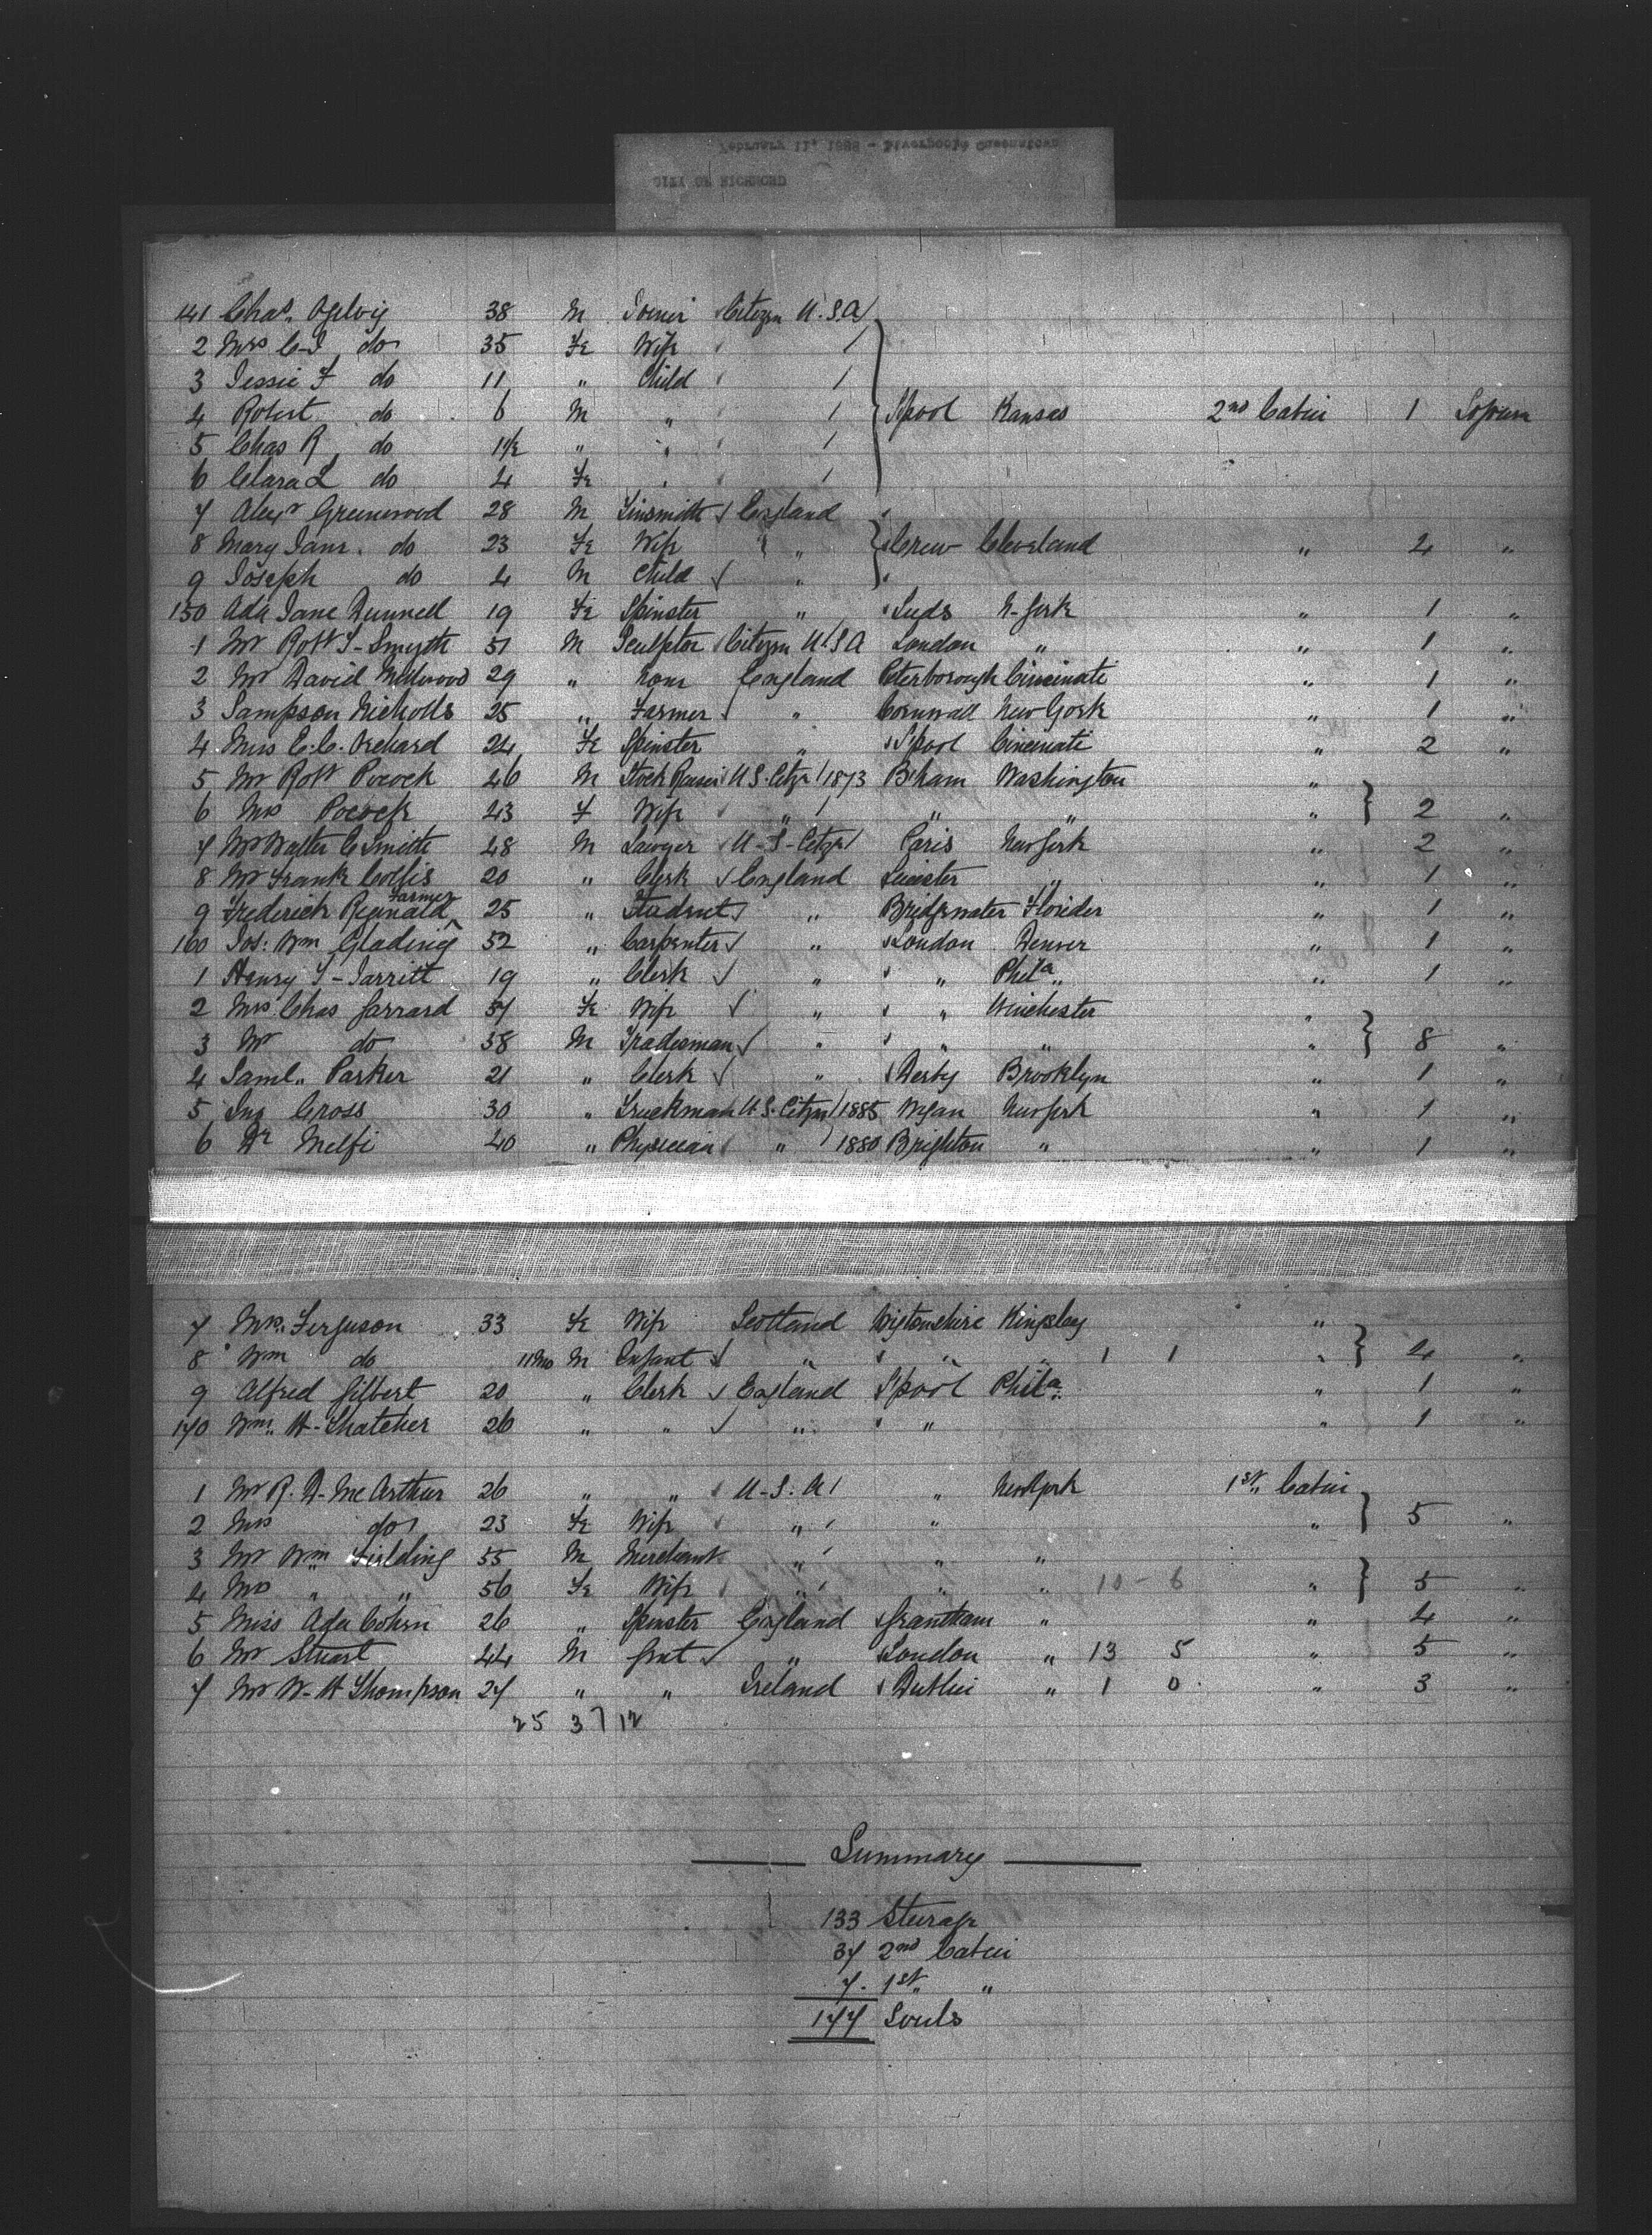 February 11, 1888 - Liverpool & Queenstown
CITY OF RICHMOND
141 Chas. Ogilvy 38 M Joiner Citizen U.S.A
2 Mrs C.J. do 35 Fe Wife
3 Jessie F do 11 " Child
4 Robert do 6 M " L'pool Kansas 2nd Cabin 1 Sojourn
5 Chas R do 1 1/2 " "
6 Clara L do 4 Fe "
7 Alexr Greenwood 28 M Tinsmith England
8 Mary Jane do 23 Fe Wife " Crew Cleveland " 2 "
9 Joseph do 4 M Child "
150 Ada Jane Dunnell 19 Fe Spinster " Leeds N-York " 1 "
1 Mr Robt S-Smyth 51 M Sculptor Citizen U.S.A London " " 1 "
2 Mr David Millwood 29 " England Peterborough Cincinati " 1 "
3 Sampson Nicholls 25 " Farmer " Cornwall New York " 1 "
4 Miss E.C. Orchard 24 Fe Spinster " L'pool Cincinati " 2 "
5 Mr Robt Pocock 46 M Stock Raiser U.S. Citzn 1873 B'ham Washington "
6 Mrs Pocock 43 F Wife " " " " 2 "
7 Mr Walter C Smith 48 M Lawyer U-S-Citzn Paris New York " 2 "
8 Mr Frank Collis 20 " Clerk England Leicester " " 1 "
9 Frederick Reginald Farmer 25 " Student " Bridgwater Florider " 1 "
160 Jos: Wm Glading 52 " Carpenter " London Denver " 1 "
1 Henry S-Jarritt 19 " Clerk " " Phila " 1 "
2 Mrs Chas Jarrard 57 Fe Wife " " Winchester "
3 Mr do 58 M Tradesman " " " " 8 "
4 Saml. Parker 21 " Clerk " Derby Brooklyn " 1 "
5 Jno Cross 30 " Truckman U.S. Citzn 1885 Wigan New York " 1 "
6 Dr Melfi 40 " Physician " 1880 Brighton " " 1 "
7 Mrs. Ferguson 33 Fe Wife Scotland Wigtonshire Kingsley "
8 Wm do 11 Mo M Infant " " " 1 1 " 2 "
9 Alfred Gilbert 20 " Clerk England L'pool Phila " 1 "
170 Wm. H-Thatcher 26 " " " " " 1 "
1 Mr R. D. McArthur 26 " " U-S. A " New York 1st Cabin
2 Mrs do 23 Fe Wife " " " 5 "
3 Mr Wm Fielding 55 M Merchant " " "
4 Mrs " " 56 Fe Wife " " " 10 - 6 " 5 "
5 Miss Ada Cohen 26 " Spinster England Grantham " " 4 "
6 Mr Stuart 44 M Gent " London " 13 5 " 5 "
7 Mr W-H Thompson 27 " " Ireland Dublin " 1 0 " 3 "
25 37 12
Summary
133 Steerage
37 2nd Cabin
7. 1st "
177 Souls